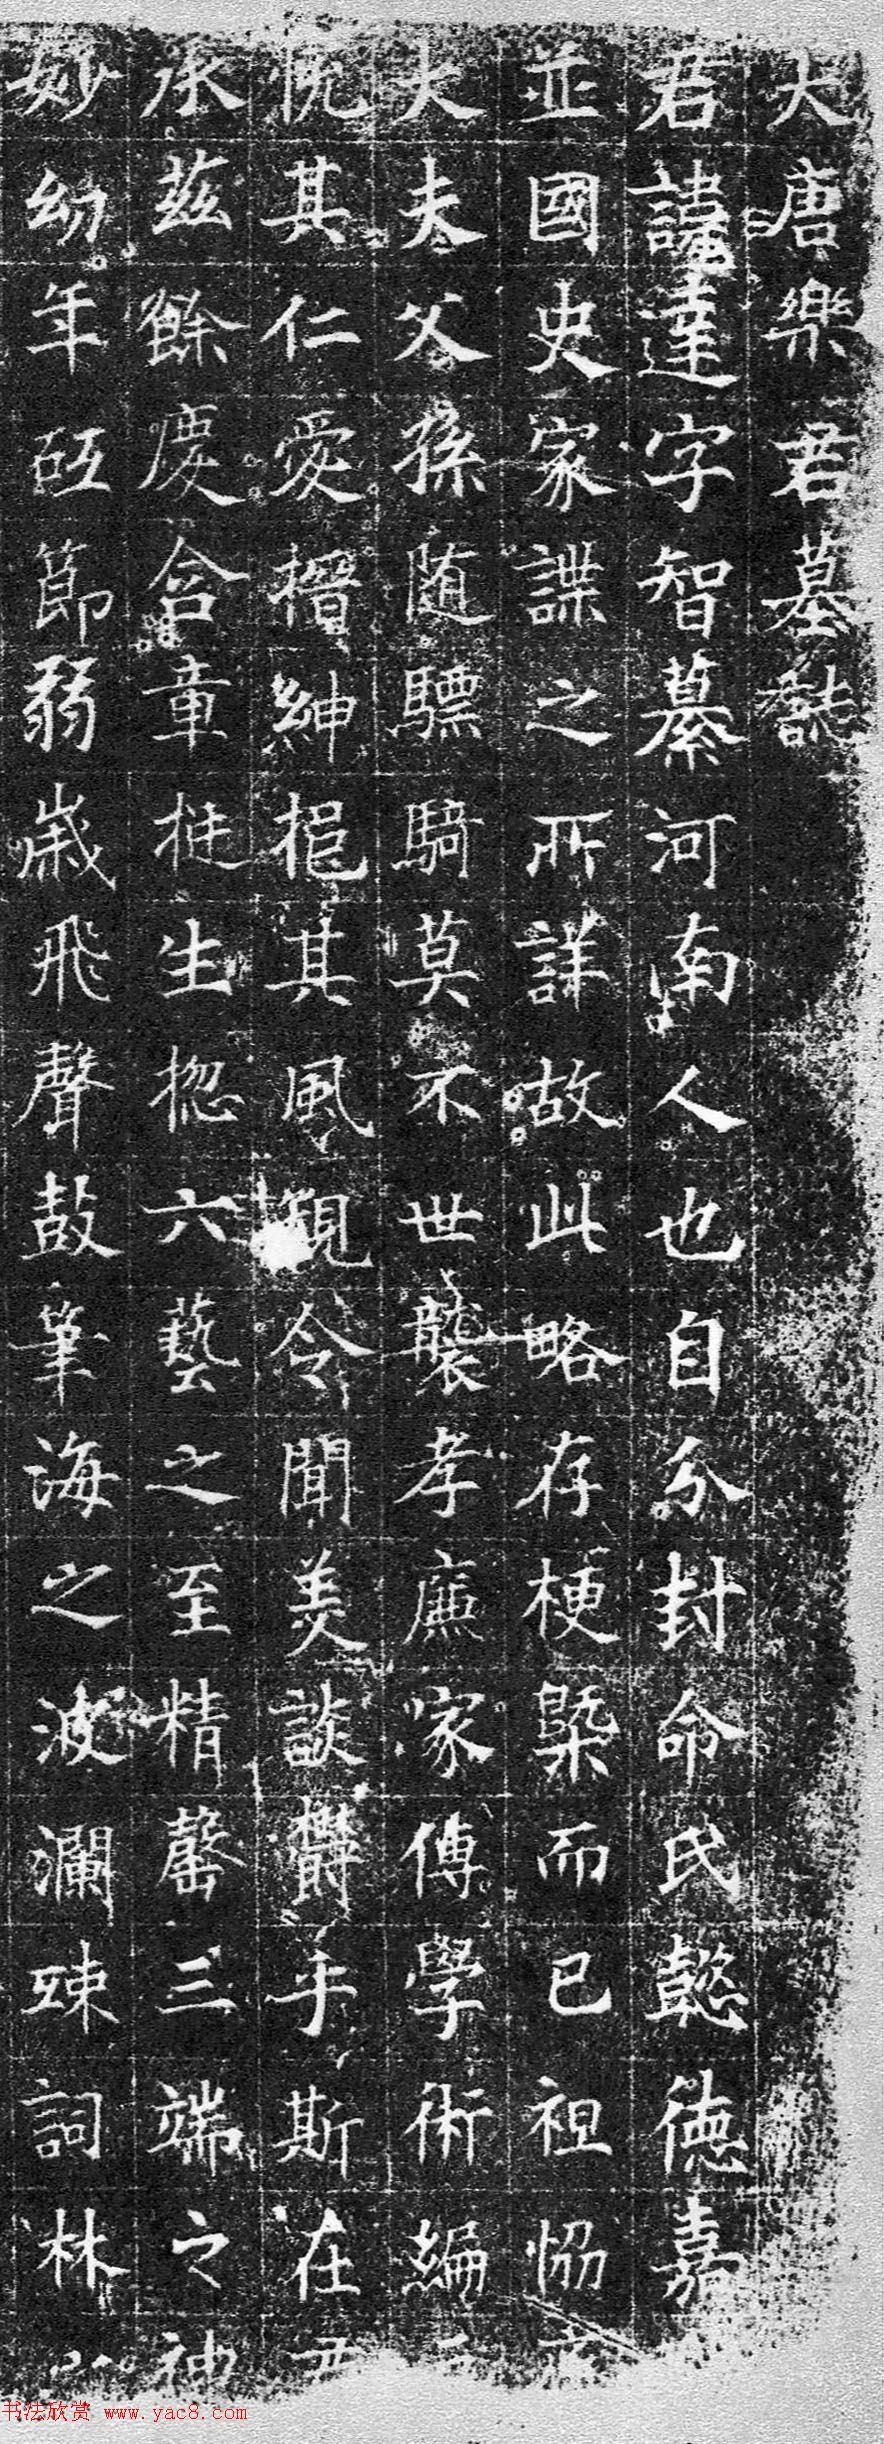 大唐樂君墓誌
君諱達字智纂河南人也自分封命氏懿德嘉
並國史家諜之所詳故此略存梗槩而已祖恊
大夫父孫随驃騎莫不世襲孝廉家傳學術編
忱其仁愛搢紳挹其風覬令聞美談欝乎斯在
承茲餘慶含章挺生揔六藝之至精罄三端之神
妙幼年砥節弱歲飛聲鼓筆海之波瀾竦詞林
书法欣赏 www.yac8.com